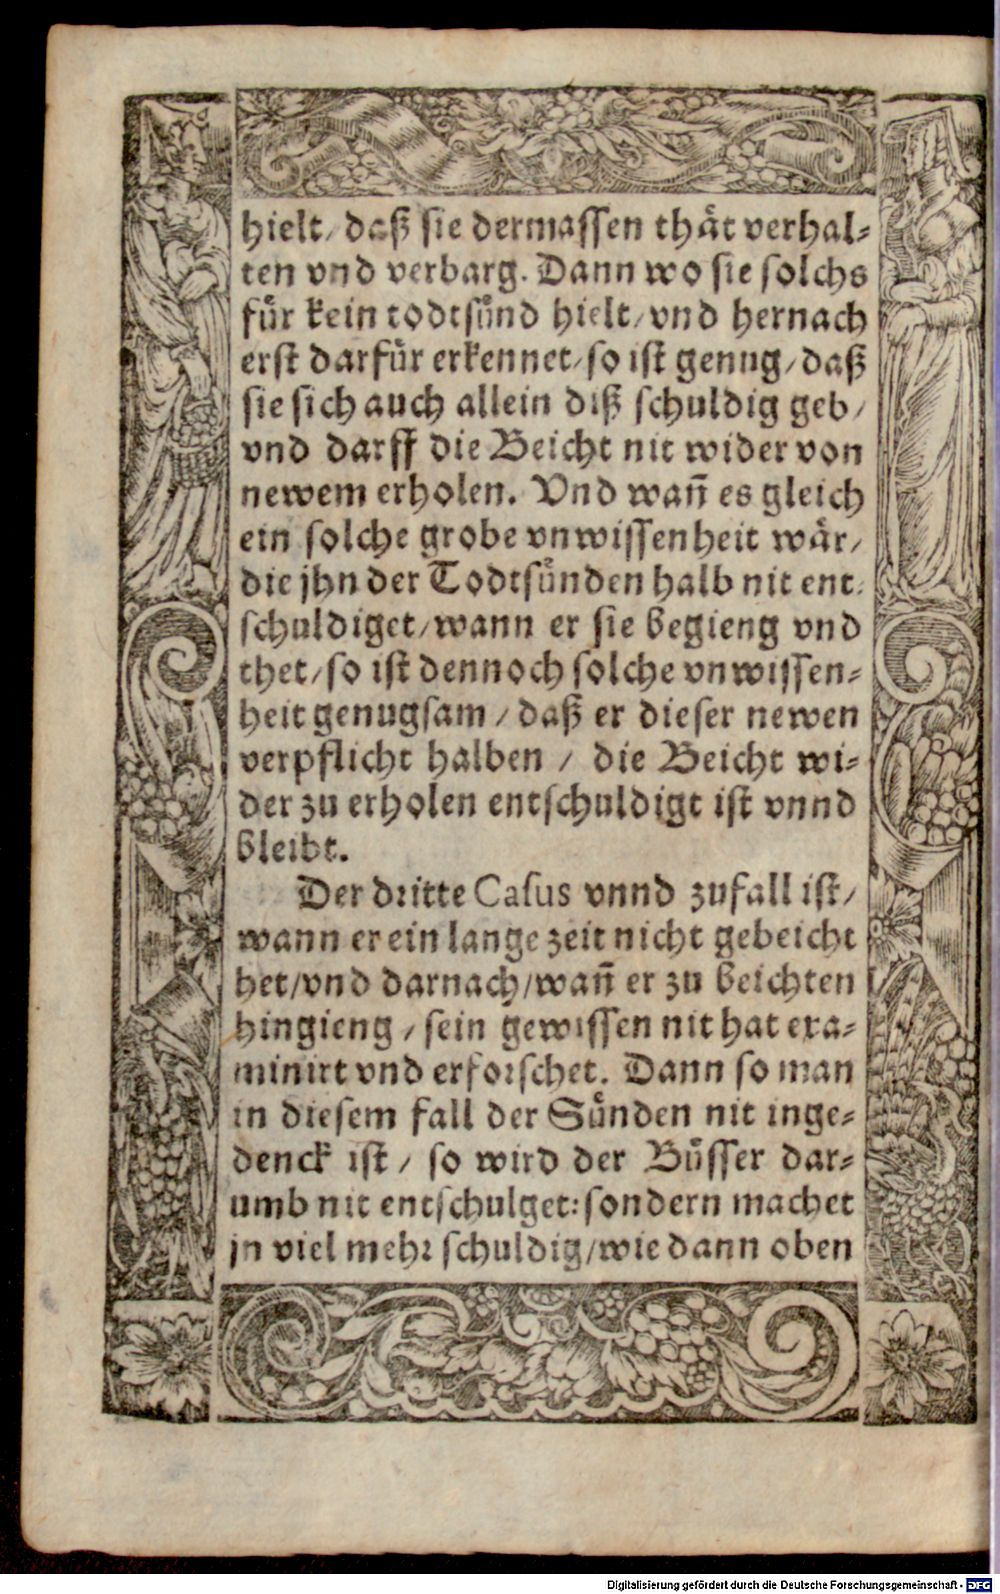 hielt/ daß sie dermassen thåt verhal⸗
ten vnd verbarg. Dann wo sie solchs
fůr kein todtsůnd hielt/ vnd hernach
erst darfůr erkennet/ so ist genug/ daß
sie sich auch allein diß schuldig geb/
vnd darff die Beicht nit wider von
newem erholen. Vnd wañ es gleich
ein solche grobe vnwissenheit wår/
die jhn der Todtsůnden halb nit ent⸗
schuldiget/ wann er sie begieng vnd
thet/ so ist dennoch solche vnwissen⸗
heit genugsam/ daß er dieser newen
verpflicht halben/ die Beicht wi⸗
der zu erholen entschuldigt ist vnnd
bleibt.
Der dritte Casus vnnd zufall ist/
wann er ein lange zeit nicht gebeicht
het/ vnd darnach/ wañ er zu beichten
hingieng/ sein gewissen nit hat exa⸗
minirt vnd erforschet. Dann so man
in diesem fall der Sůnden nit inge⸗
denck ist/ so wird der Bůsser dar⸗
umb nit entschulget: sondern machet
jn viel mehr schuldig/ wie dann oben
Digitalisierung gefördert durch die Deutsche Forschungsgemeinschaft - DFG